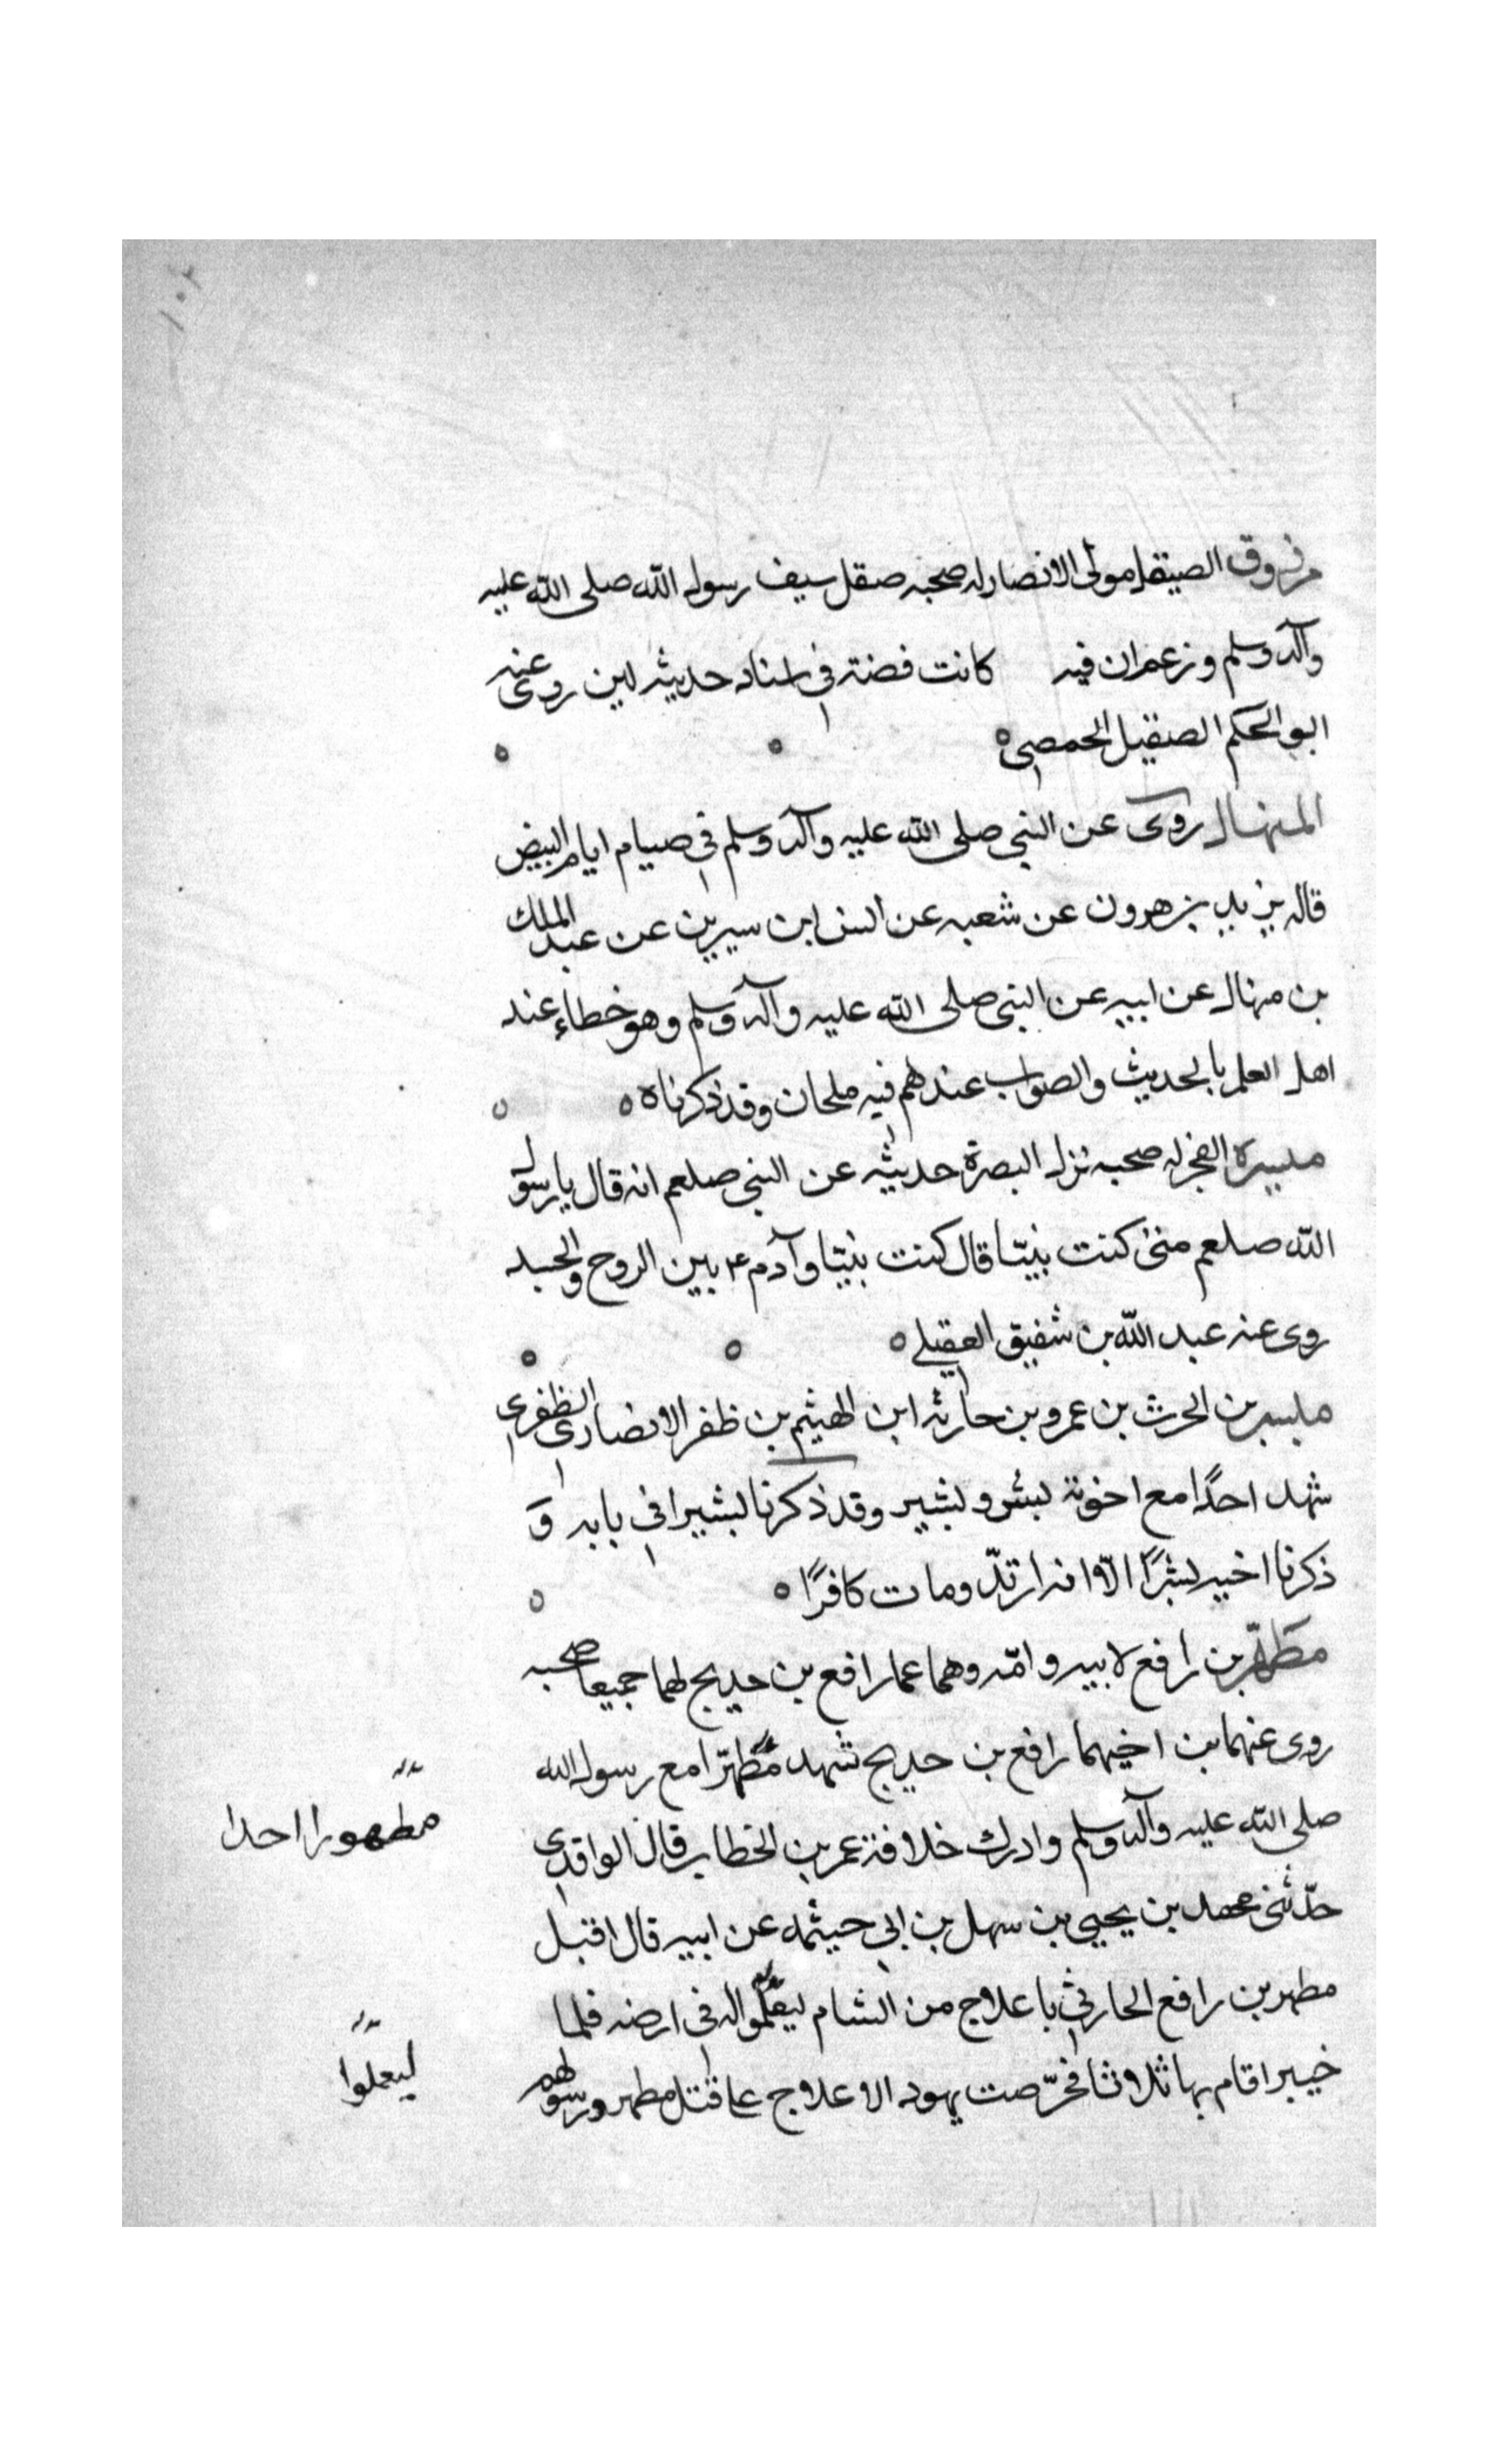 ١٠٢
مرزوق الصيقل مولى الانصار له صحبه صقل سيف رسول الله صلى الله عليه
وآله وسلم وزعم ان فيه كانت فضة في اسناد حديثه لين روى عنه
ابو الحكم الصيقيل الحمصي
المنهال روى عن النبي صلى الله عليه وآله وسلم في صيام ايام البيض
قاله يزيد بن هرون عن شعبه عن انس ابن سيرين عن عبد الملك
بن منهال عن ابيه عن النبي صلى الله عليه وآله وسلم وهو خطاء عند
اهل العلم بالحديث والصواب عندهم فيه ملحان وقد ذكرناه
ميسرة الفجر له صحبه نزل البصرة حديثه عن النبي صلعم انه قال يا رسول
الله صلعم متى كنت نبيّا قال كنت نبيّا وآدم ع بين الروح والجسد
روى عنه عبد الله بن شقيق العقيلي
مبشر بن الحرث بن عمرو بن حارثه ابن الهيثم بن ظفر الانصاري الظفري
شهد احدًا مع اخوته بشر وبشير وقد ذكرنا بشيرا في بابه وَ
ذكرنا اخيه بشرًا الّا انه ارتدّ ومات كافرًا
مطهّر بن رافع لابيه وامّه وهما عما رافع بن خديج لهما جميعا صحبه
روى عنهما بن اخيهما رافع بن خديج شهد مطهّرا مع رسول الله
مطهورا احدا
صلى الله عليه وآله وسلم وادرك خلافة عمر بن الخطاب قال الواقدي
حدّثنى محمد بن يحيى بن سهل بن ابي حيثمه عن ابيه قال اقبل
مطهر بن رافع الحارثي باعلاج من الشام ليعلّموا له في ارضه فلما
ليعملوا
خيبر اقام بها ثلاوثا فحرّصت يهود الاعلاج على قتل مطهر ورسولهم